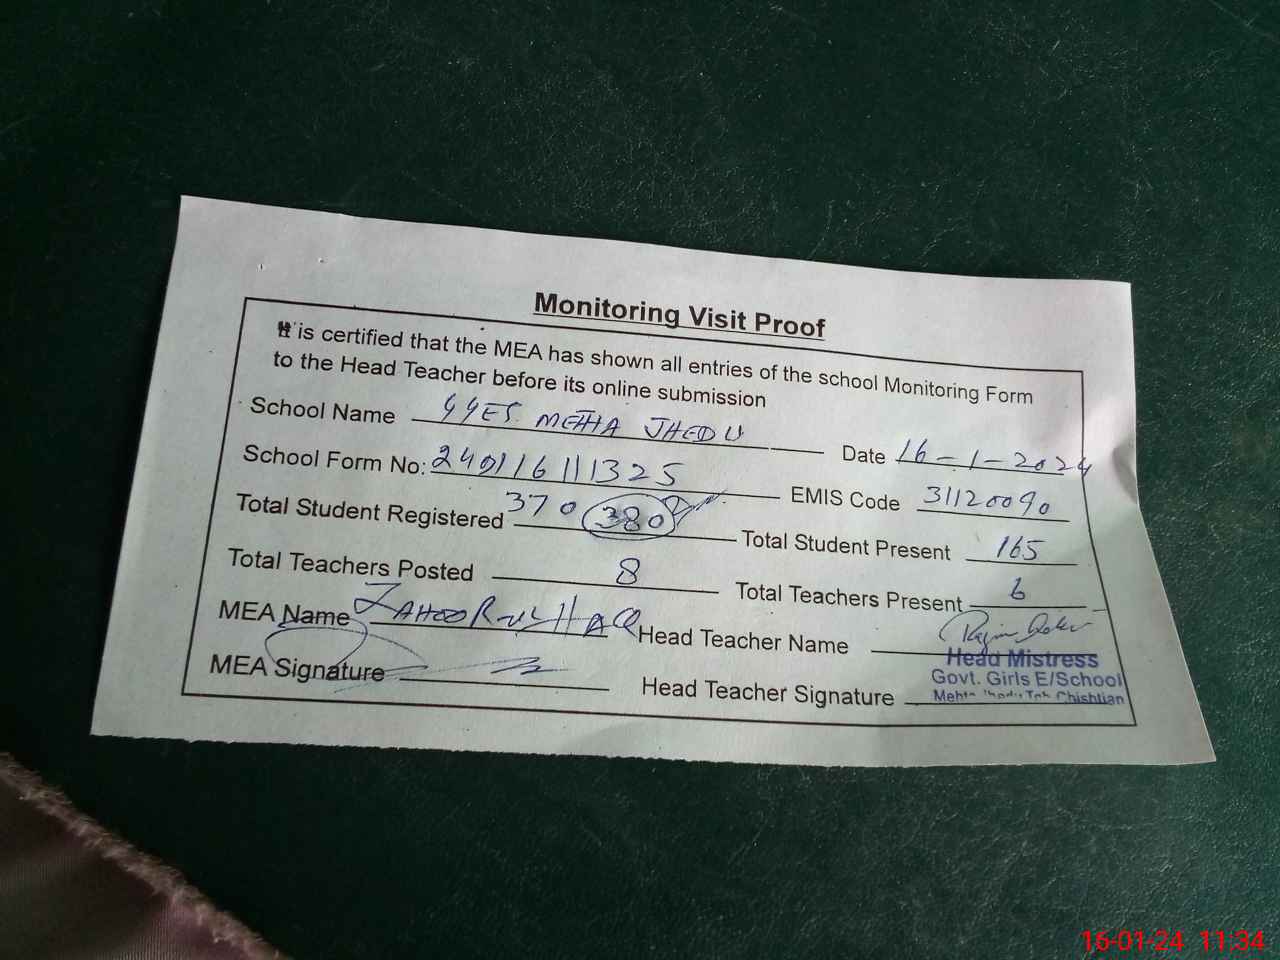 Monitoring Visit Proof
It is certified that the MEA has shown all entries of the school Monitoring Form
to the Head Teacher before its online submission
School Name GGES MEHTA JHEDU Date 16-1-2024
School Form No: 240116111325 EMIS Code 31120090
Total Student Registered 370 380 Total Student Present 165
Total Teachers Posted 8 Total Teachers Present 6
MEA Name ZAHOOR UL HAQ Head Teacher Name
MEA Signature Head Teacher Signature
Head Mistress
Govt. Girls E/School
Mehta Jhedu Teh Chishtian
16-01-24 11:34